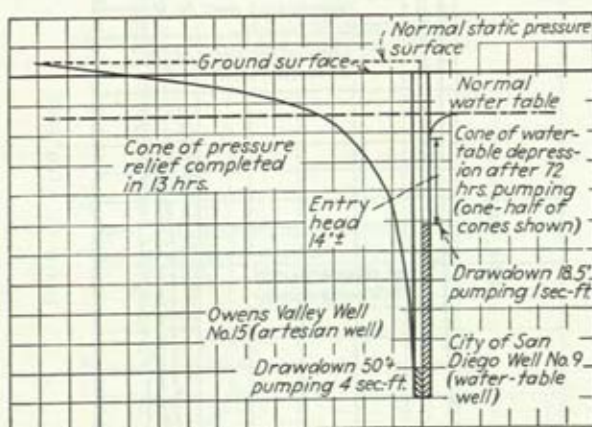 Normal static pressure
surface
Ground surface
Normal
water table
Cone of pressure
relief completed
in 13 hrs.
Cone of water-
table depress-
ion after 72
hrs. pumping
(one-half of
cones shown)
Entry
head
14'±
Drawdown 18.5',
pumping 1 sec-ft.
Owens Valley Well
No.15 (artesian well)
Drawdown 50'±
pumping 4 sec-ft.
City of San
Diego Well No.9
(water-table
well)